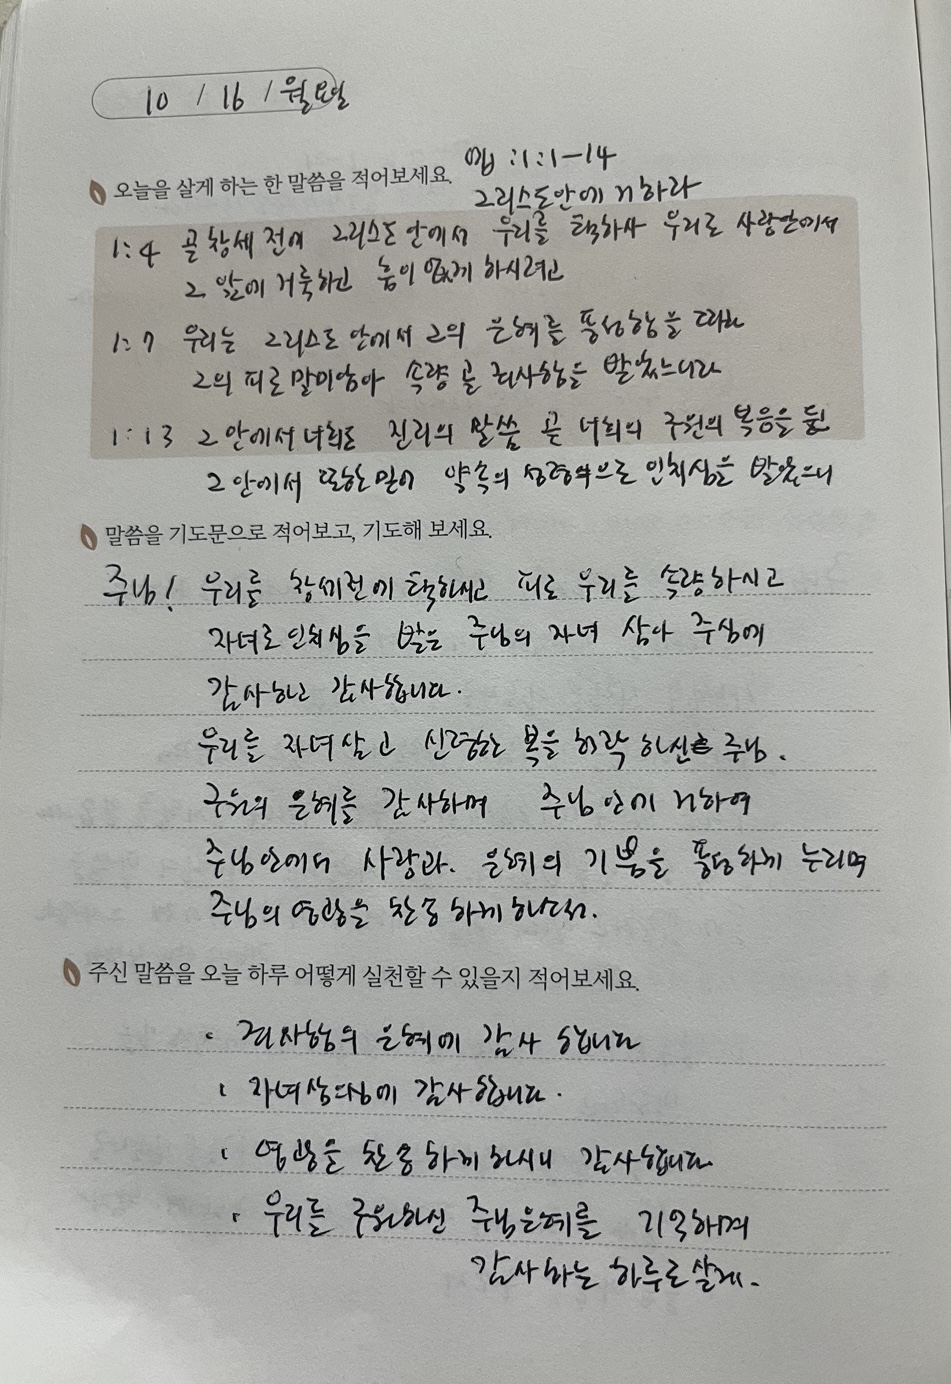 10 / 16 / 월요일
엡 :1:1-14
오늘을 살게 하는 한 말씀을 적어보세요.
그리스도안에 거하라
1:4 곧 창세 전에 그리스도 안에서 우리를 택하사 우리로 사랑안에서
그 앞에 거룩하고 흠이 없게 하시려고
1:7 우리는 그리스도 안에서 그의 은혜를 풍성함을 따라
그의 피로말미암아 속량 곧 죄사함을 받았느니라
1:13 그안에서 너희도 진리의 말씀 곧 너희의 구원의 복음을 듣고
그 안에서 또한 믿어 약속의 성령으로 인치심을 받았으니
말씀을 기도문으로 적어보고, 기도해 보세요.
주님! 우리를 창세전에 택하시고 피로 우리를 속량하시고
자녀로 인치심을 받은 주님의 자녀 삼아 주심에
감사하고 감사합니다.
우리를 자녀삼고 신령한 복을 허락 하신 주님.
구원의 은혜를 감사하며 주님 안에 거하여
주님안에서 사랑과. 은혜의 기쁨을 풍성하게 누리며
주님의 영광을 찬송 하게 하소서.
주신 말씀을 오늘 하루 어떻게 실천할 수 있을지 적어보세요.
· 죄사함의 은혜에 감사 합니다
· 자녀삼으심에 감사합니다.
· 영광을 찬송 하게 하시니 감사합니다
· 우리를 구원하신 주님은혜를 기억하며
감사하는 하루로 살게.